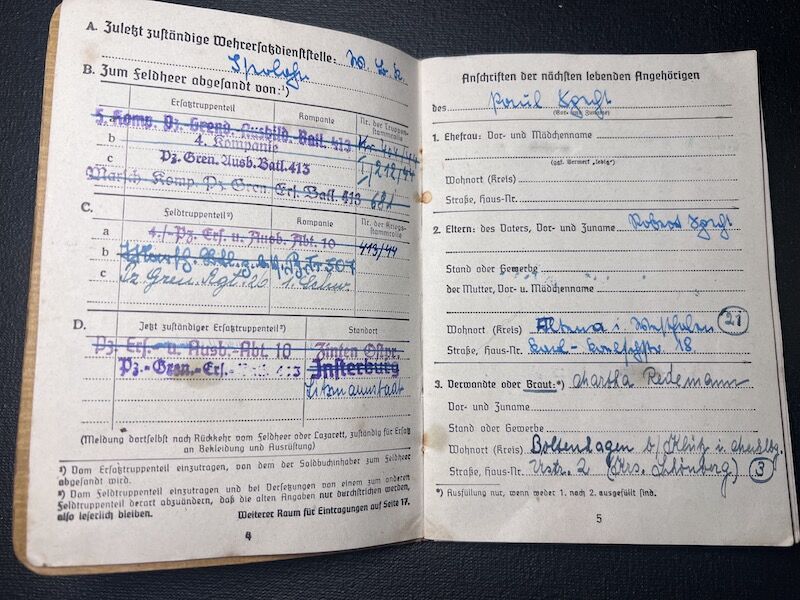 A. Zuletzt zuständige Wehrersatzdienststelle: W. B. K.
B. Zum Feldheer abgesandt von:¹)
Ersatztruppenteil Kompanie Nr. der Truppenstammrolle
5. Komp. Pz. Grend. Ausbild. Batl. 413
b 4. Kompanie 212/44
c Pz. Gren. Ausb. Batl. 413
Marsch Komp. Pz Gren Ers. Batl. 413 681
C.
Feldtruppenteil²) Kompanie Nr. der Kriegsstammrolle
a 4./-Pz. Ers. u. Ausb. Abt. 10 413/44
b
c Pz. Gren. Rgt. 26
D.
Jetzt zuständiger Ersatztruppenteil²) Standort
Pz. Ers.- u. Ausb.-Abt. 10 Zinten Ostpr.
Pz.-Gren.-Ers. 413 Insterburg
Litzmannstadt
(Meldung dortselbst nach Rückkehr vom Feldheer oder Lazarett, zuständig für Ersatz
an Bekleidung und Ausrüstung)
¹) Vom Ersatztruppenteil einzutragen, von dem der Soldbuchinhaber zum Feldheer
abgesandt wird.
²) Vom Feldtruppenteil einzutragen und bei Versetzungen von einem zum anderen
Feldtruppenteil derart abzuändern, daß die alten Angaben nur durchstrichen werden,
also leserlich bleiben. Weiterer Raum für Eintragungen auf Seite 17.
4
Anschriften der nächsten lebenden Angehörigen
des Paul
(Vor- und Zuname)
1. Ehefrau: Vor- und Mädchenname
(ggf. Vermerk „ledig")
Wohnort (Kreis)
Straße, Haus-Nr.
2. Eltern: des Vaters, Vor- und Zuname Robert
Stand oder Gewerbe
der Mutter, Vor- u. Mädchenname
Wohnort (Kreis) Altena i. Westfalen 21
Straße, Haus-Nr. 18
3. Verwandte oder Braut:*) Martha Redemann
Vor- und Zuname
Stand oder Gewerbe
Wohnort (Kreis) Boltenhagen b/ Klütz i. Mecklbg.
Straße, Haus-Nr. 2 (Krs. Schönberg) 3
*) Ausfüllung nur, wenn weder 1. noch 2. ausgefüllt sind.
5